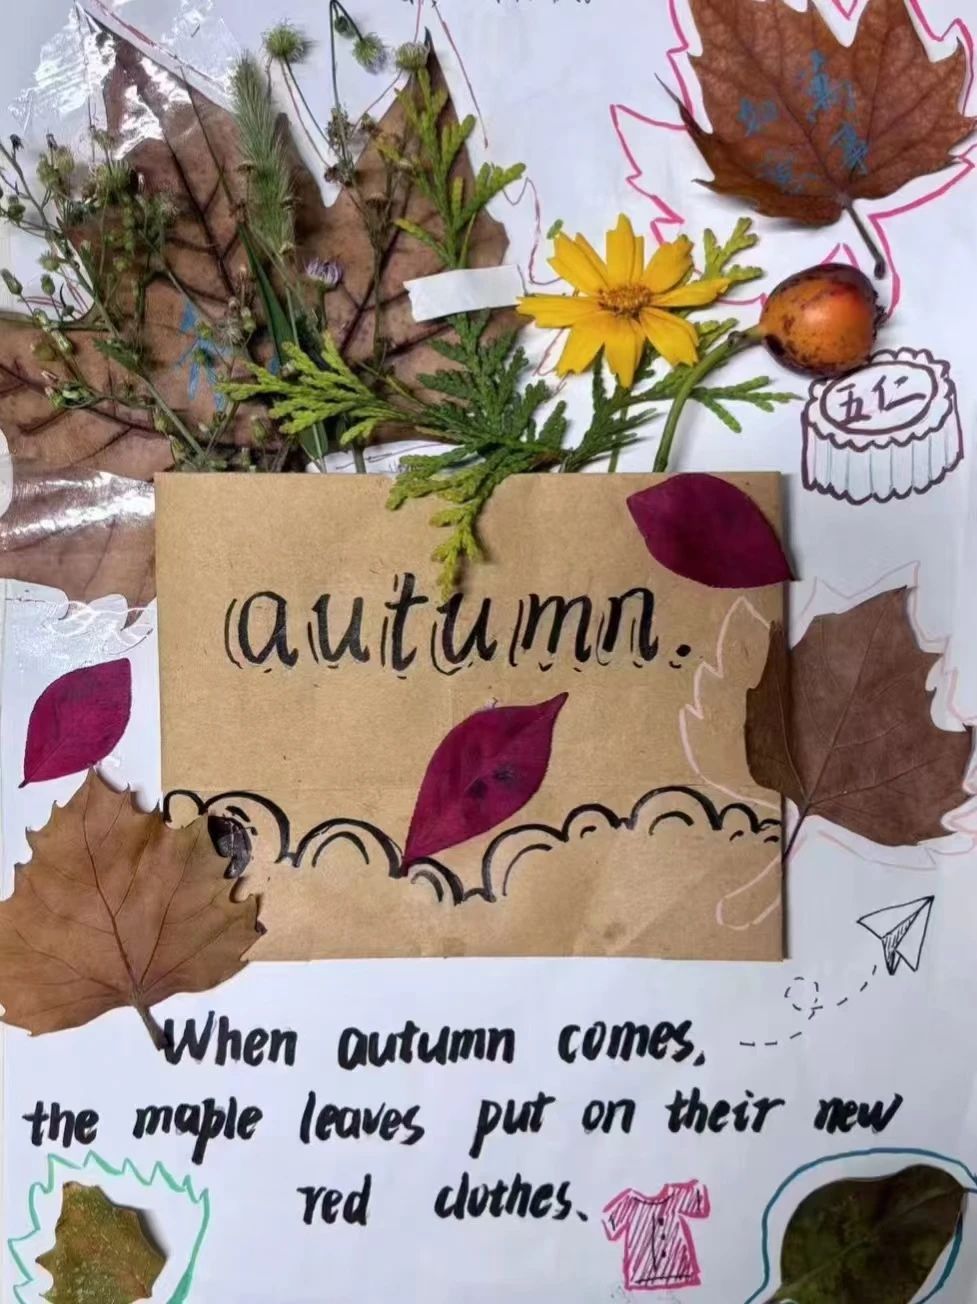 五仁
autumn.
When autumn comes,
the maple leaves put on their new
red clothes.